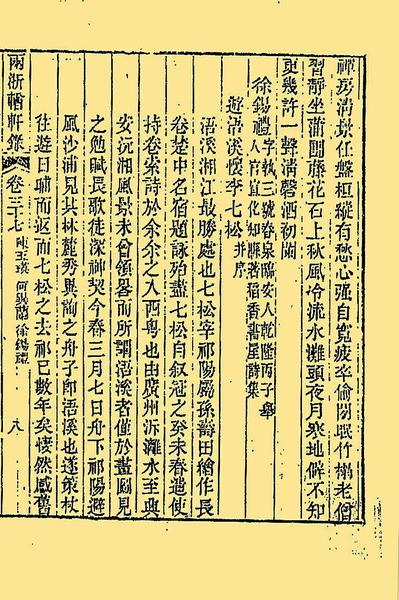 禪房清景任盤桓縱有愁心強自寬疲卒偷閒眠竹榻老僧
習靜坐蒲團藤花石上秋風冷流水灘頭夜月寒地僻不知
更幾許一聲清磬洒初闌
徐錫禮 字執三號春泉臨安人乾隆丙子舉
人官宣化知縣著稻香書屋詩集
遊浯溪懷李七松 并序
浯溪湘江最勝處也七松宰祁陽屬孫壽田繪作長
卷楚中名宿題詠殆盡七松自叙冠之癸未春遣使
持卷索詩於余余之入西粤也由廣州泝灕水至興
安沅湘風景未曾領畧而所謂浯溪者僅於畫圖見
之勉賦長歌徒深神契今春三月七日舟下祁陽避
風沙浦見其林麓秀異詢之舟子即浯溪也遂策杖
往遊日晡而返而七松之去祁已數年矣悽然感舊
兩浙輶軒錄 卷三十七 陳玉 何 徐錫禮 八